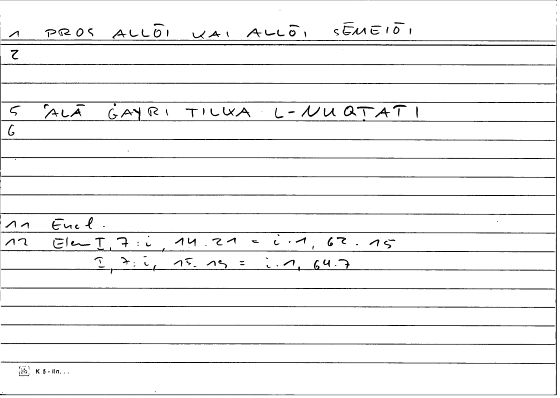 1 PROS ALLŌI KAI ALLŌI SĒMEIŌI
2
5 ʿALĀ ĠAYRI TILKA L-NUQṬATI
6
11 Eucl.
12 Elem I, 7: i, 14.21 = i.1, 62.15
I, 7: i, 15.19 = i.1, 64.7